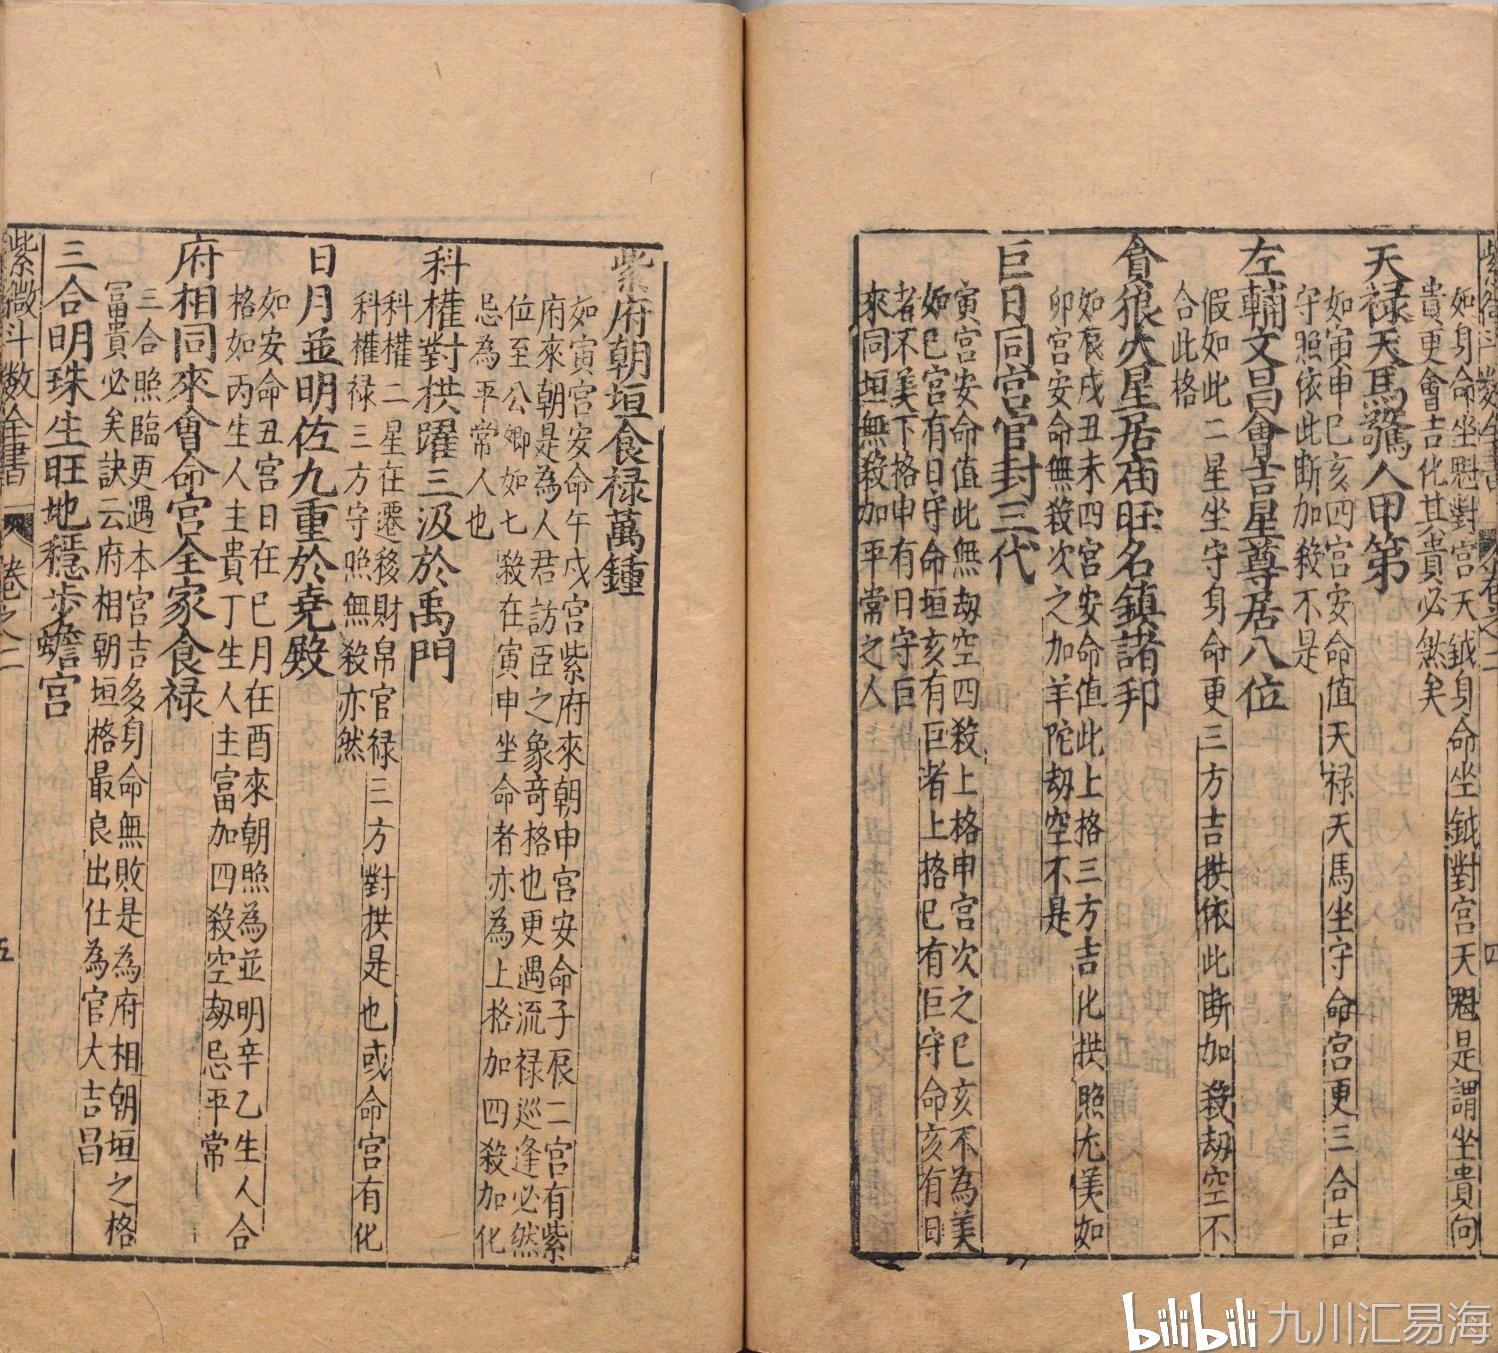 紫微斗數全書
卷之二
四
如身命坐魁對宮天鉞身命坐鉞對宮天魁是謂坐貴向
貴更會吉化其貴必然矣
天祿天馬驚人甲第
如寅申巳亥四宮安命值天祿天馬坐守命宮更三合吉
守照依此斷加殺不是
左輔文昌會吉星尊居八位
假如此二星坐守身命更三方吉拱依此斷加殺劫空不
合此格
貪狼火星居庙旺名鎮諸邦
如辰戌丑未四宮安命值此上格三方吉化拱照尢美如
卯宮安命無殺次之加羊陀劫空不是
巨日同宮官封三代
寅宮安命值此無劫空四殺上格申宮次之巳亥不為美
如巳宮有日守命垣亥有巨者上格巳有巨守命亥有日
者不美下格申有日守巨
來同垣無殺加平常之人
紫府朝垣食祿萬鍾
如寅宮安命午戌宮紫府來朝申宮安命子辰二宮有紫
府來朝是為人君訪臣之象奇格也更遇流祿巡逢必然
位至公卿如七殺在寅申坐命者亦為上格加四殺加化
忌為平常人也
科權對拱躍三汲於禹門
科權二星在遷移財帛官祿三方對拱是也或命宮有化
科權祿三方守照無殺亦然
日月並明佐九重於堯殿
如安命丑宮日在巳月在酉來朝照為並明辛乙生人合
格如丙生人主貴丁生人主富加四殺空刼忌平常
府相同來會命宮全家食祿
三合照臨更遇本宮吉多身命無敗是為府相朝垣之格
富貴必矣訣云府相朝垣格最良出仕為官大吉昌
三合明珠生旺地穩步蟾宮
紫微斗數全書
卷之二
五
bilibili 九川汇易海